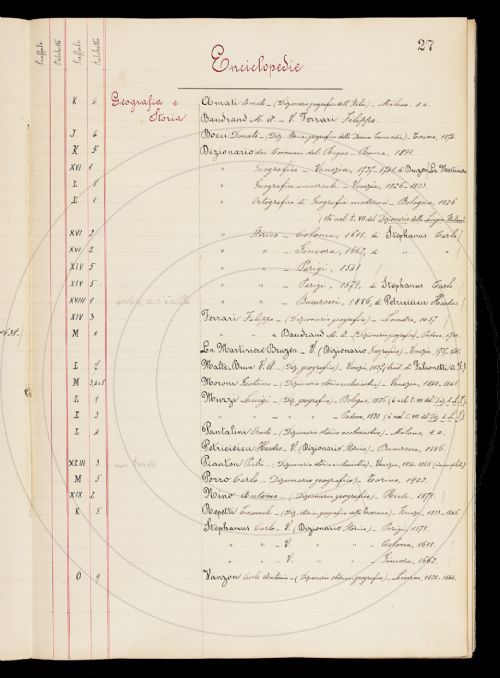 27
Enciclopedie
Scaffale Palchetto Scaffale Palchetto
Geografia e Storia
K 6 Amati Amato - (Dizionario geografico dell'Italia) - Milano, s.a.
Baudrand M. A. - V. Ferrari Filippo.
J 6 Bocci Donato - (Diz. geografico della Divina Commedia) - Torino, 1873.
K 5 Dizionario dei Comuni del Regno - Roma, 1891.
XVI 1 " Geografico - Venezia, di Bruzen La Martiniere
L 8 " Geografico universale - Venezia, 1826-1833.
L 1 " Ortografico di Geografia moderna - Bologna, 1826
(È nel t. VII del Dizionario della Lingua Italiana)
XVI 2 " Storico - Colonia, 1618, di Stephanus Carlo
XVI 2 " " - Ginevra, 1662, di " "
XIV 5 " " - Parigi, 1561.
XIV 5 " " - Parigi, 1571, di Stephanus Carlo
XVIII 1 " " - Bucuresci, 1886, di Petriceicu Hasdeu
XIV 3 Ferrari Filippo - (Dizionario geografico) - Londra, 1657
1638. M 1 " " e Baudrand M. A. - (Dizionario geografico) - Padova,
La Martiniere Bruzen - V. (Dizionario Geografico) - Venezia,
L Malte-Brun V. A. - (Diz. geografico) - Venezia, (trad. di Falconetti A. F.)
M Moroni Gaetano - (Dizionario storico ecclesiastico) - Venezia, 1840-1861.
L 1 Muzzi Luigi - (Diz. geografico) - Bologna, 1826 (è nel t. VII del Diz. d. L. I.)
L 3 " " - " " - Padova, 1830 (è nel t. VII del Diz. d. L. I.)
L 1 Pantalini - (Dizionario storico ecclesiastico) - Milano, s.a.
Petriceicu Hasdeu - V. (Dizionario Storico) - Bucuresci, 1886.
XLIII 3 Pianton Pietro - (Dizionario storico ecclesiastico) - Venezia, (incompleto)
M 5 Porro Carlo - (Dizionario geografico) - Torino, 1902.
XIX 2 Nino Antonio - (Dizionario geografico) -
K 5 Repetti Emanuele - (Diz. storico geografico della Toscana) - Firenze, 1833-1846.
Stephanus Carlo - V. (Dizionario Storico) - Parigi, 1571.
" " - V. " " - Colonia, 1618.
" " - V. " " - Ginevra, 1662.
O 9 Vanzon Carlo Antonio - (Dizionario storico geografico) - Livorno,